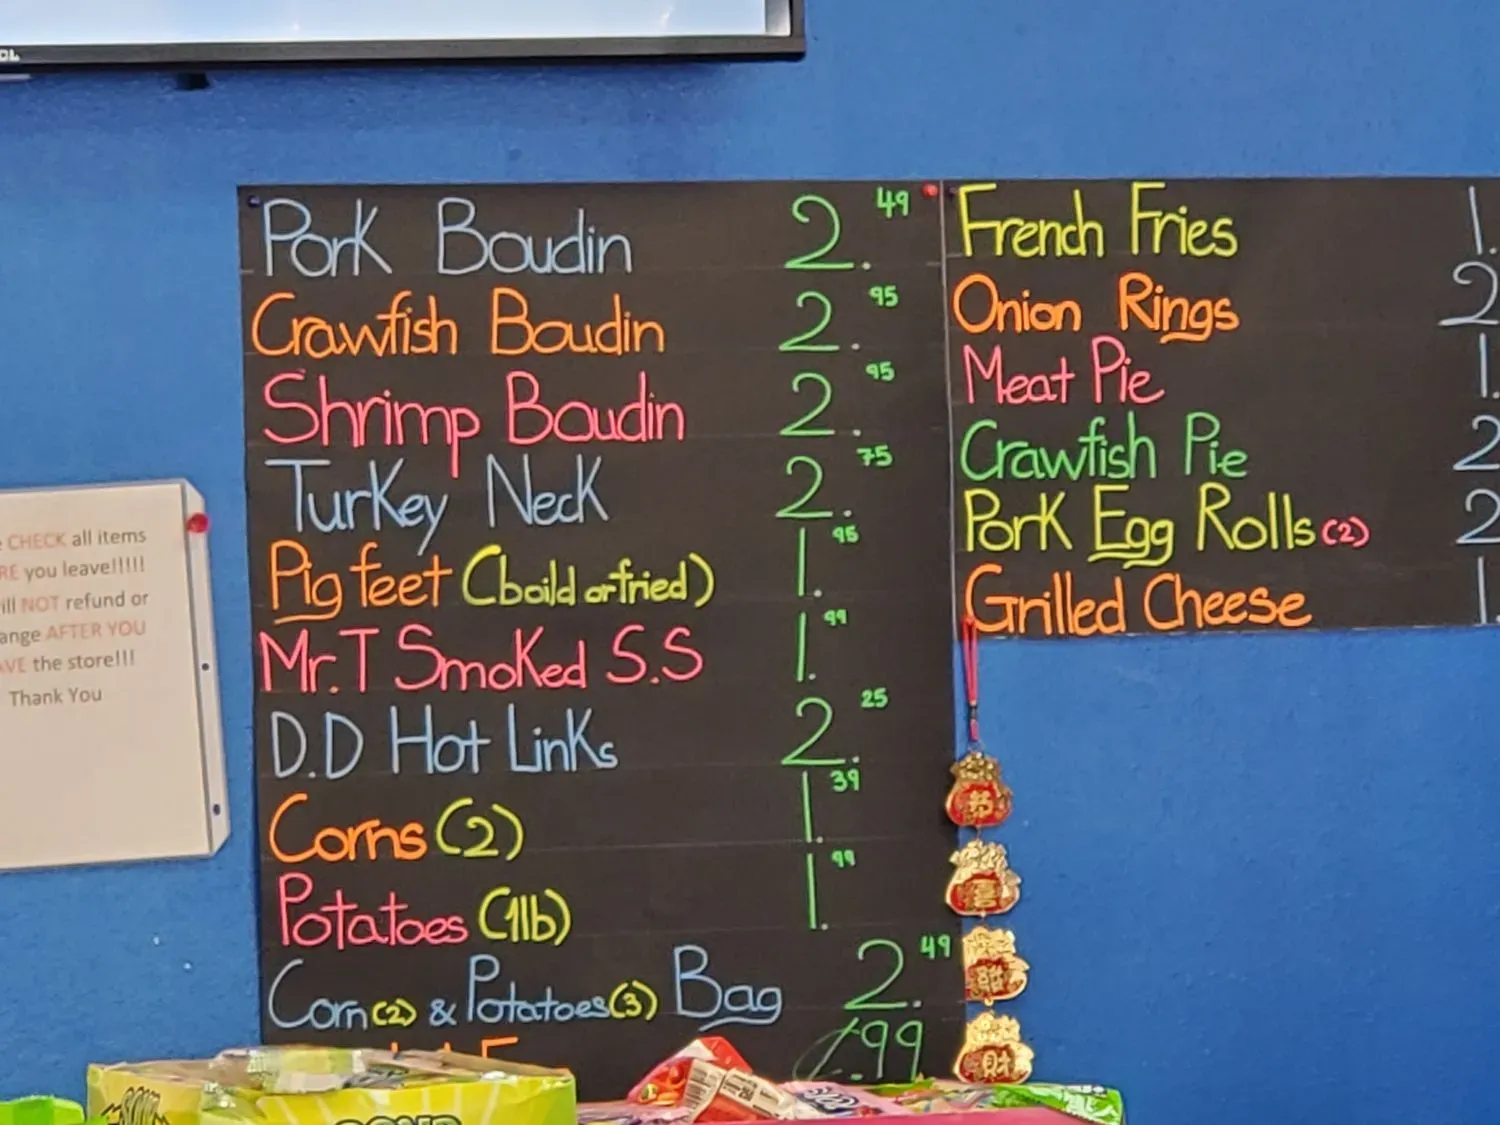 Pork Boudin 2.49
Crawfish Boudin 2.95
Shrimp Boudin 2.95
Turkey Neck 2.75
Pig feet (boild or fried) 1.95
Mr.T Smoked S.S 1.99
D.D Hot Links 2.25
Corns (2) 1.39
Potatoes (1lb) 1.99
Corn (2) & Potatoes (3) Bag 2.49
.99
French Fries 1.
Onion Rings 2
Meat Pie 1.
Crawfish Pie 2
Pork Egg Rolls (2) 2
Grilled Cheese 1.
CHECK all items
RE you leave!!!!!
ill NOT refund or
ange AFTER YOU
AVE the store!!!
Thank You